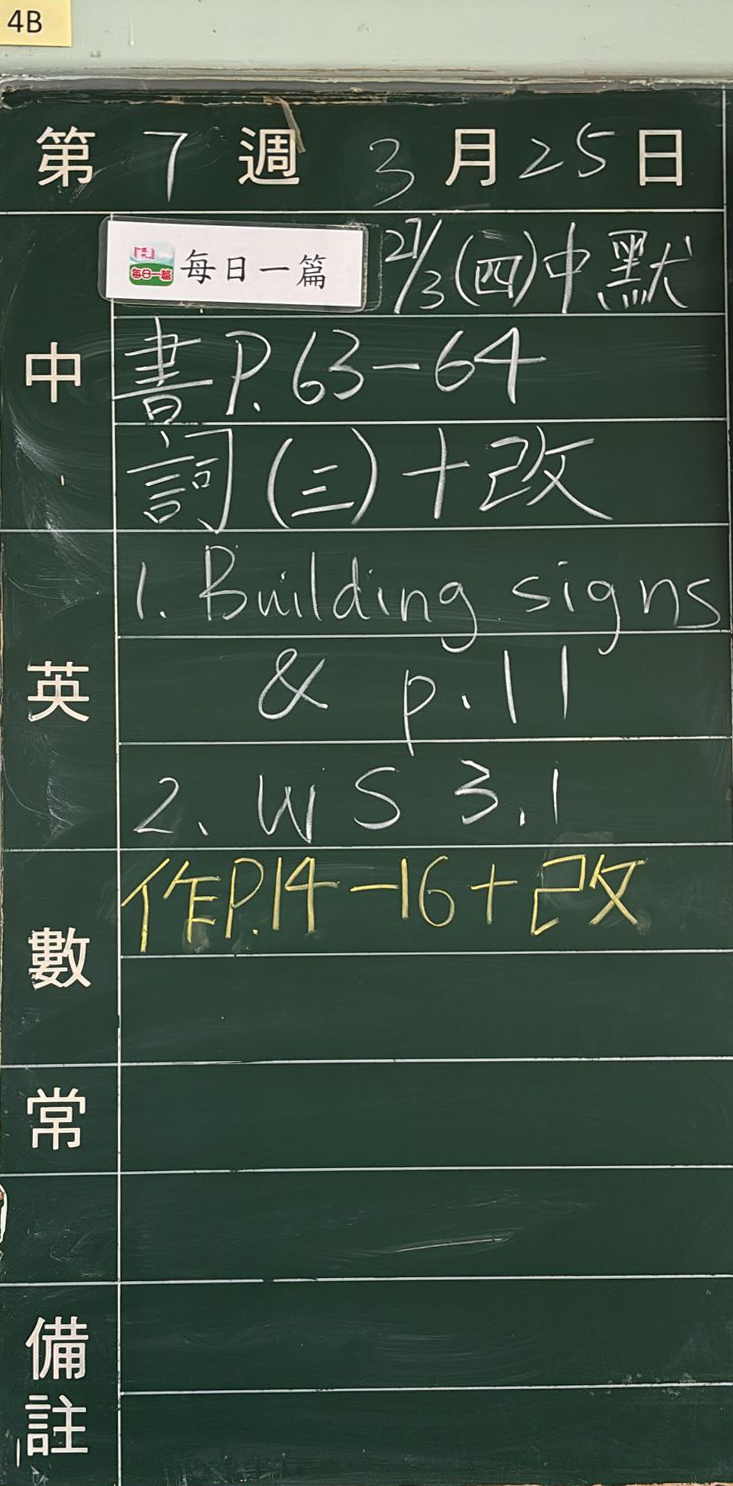 4B
第 7 週 3 月 25 日
每日一篇 每日一篇 27/3 (四) 中默
中
書 P. 63-64
詞 (三) + 改
英
1. Building signs
& p. 11
2. WS 3.1
數
作 P.14-16 + 改
常
備註